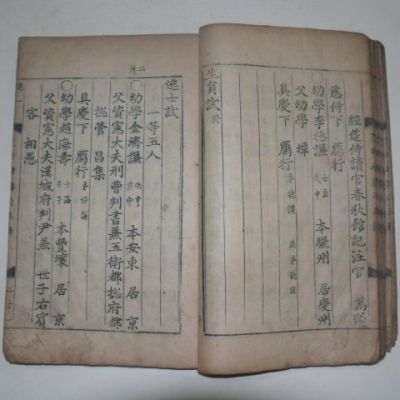 經筵侍讀官春秋館記注官 萬
慈侍下 鴈行
〇幼學李 謙 本驪州 居慶州
父幼學
具慶下 鴈行
生員試終
二所
進士試
一等五人
〇幼學金濟謙 必亨 庚申 本安東 居京
父資憲大夫刑曹判書兼五衛都摠府都
摠管 昌集
具慶下 鴈行 弟好謙
〇幼學趙海壽 士涵 壬子 本豐壤 居京
父資憲大夫漢城府判尹兼 世子右賓
客 相愚